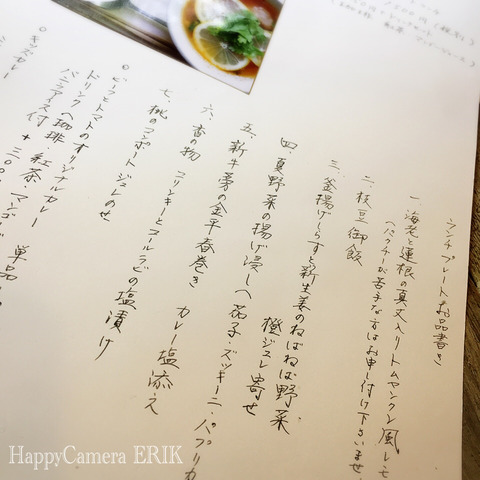 ランチプレートお品書き
一、海老と蓮根の真丈入りトムヤンクン風レモ
(パクチーが苦手な方はお申し付け下さいませ
二、枝豆御飯
三、釜揚げしらすと新生姜のねばねば野菜
橙ジュレ寄せ
四、夏野菜の揚げ浸し(茄子・ズッキーニ・パプリカ
五、新牛蒡の金平春巻き カレー塩添え
六、香の物 コリンキーとコールラビの塩漬け
七、桃のコンポートジュレのせ
○ビーフとトマトのオリジナルカレー 単品
ドリンク(珈琲・紅茶・マンゴー
バニラアイス付 +三〇〇
○キッズカレー
HappyCamera ERIK